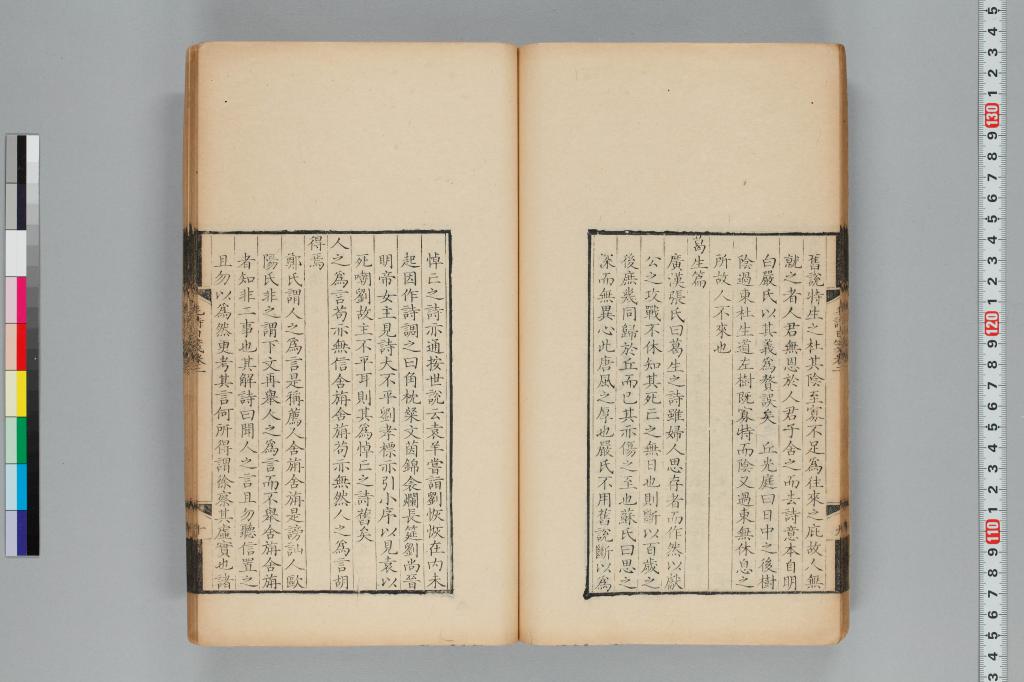 舊說特生之杜其陰至寡不足爲往來之庇故人無
就之者人君無恩於人君子舍之而去詩意本自明
白嚴氏以其義爲贅誤矣 丘光庭曰日中之後樹
陰過東杜生道左樹旣寡特而陰又過東無休息之
所故人不來也
葛生篇
廣漢張氏曰葛生之詩雖婦人思存者而作然以獻
公之攻戰不休知其死亾之無日也則斷以百歲之
後庶幾同歸於丘而已其亦傷之至也蘇氏曰思之
深而無異心此唐風之厚也嚴氏不用舊說斷以爲
悼亾之詩亦通按世說云袁羊嘗詣劉恢恢在内未
起因作詩調之曰角枕粲文茵錦衾爛長筵劉尚晉
明帝女主見詩大不平劉孝標亦引小序以見袁以
死嘲劉故主不平耳則其爲悼亾之詩舊矣
人之爲言苟亦無信舍旃舍旃苟亦無然人之爲言胡
得焉
鄭氏謂人之爲言是稱薦人舍旃舍旃是謗訕人歐
陽氏非之謂下文再舉人之爲言而不舉舍旃舍旃
者知非二事也其解詩曰聞人之言且勿聽信置之
且勿以爲然更考其言何所得謂徐察其虛實也諸